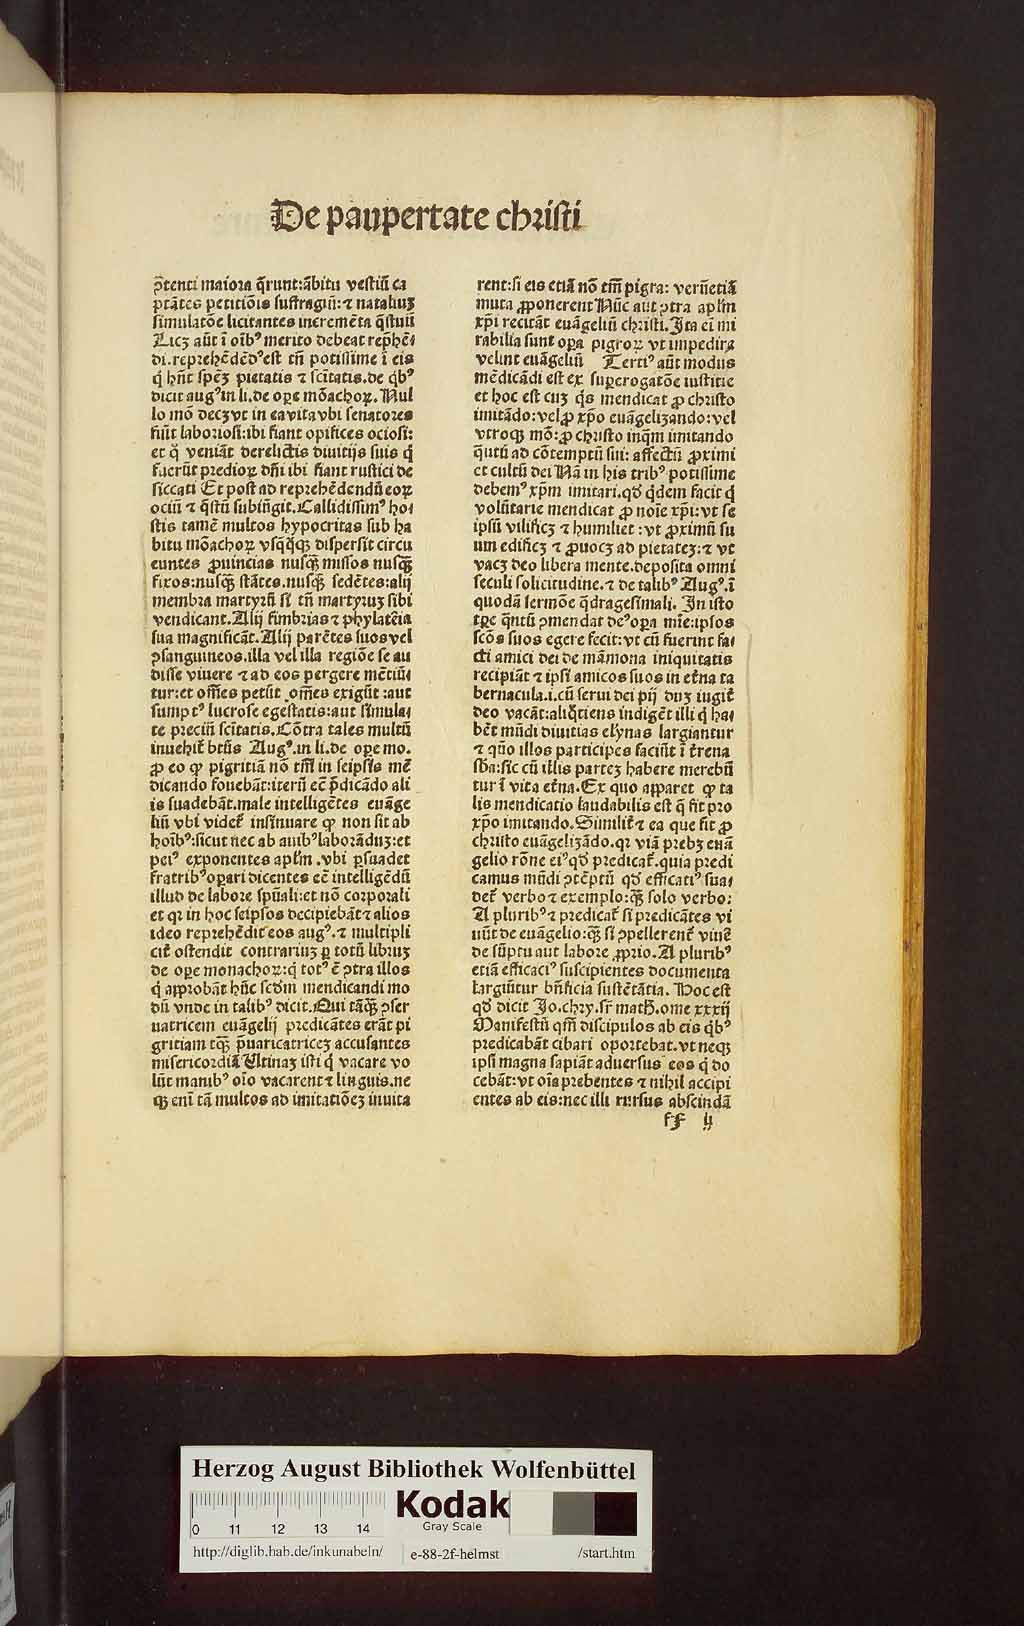 De paupertate christi
p̄tenti maiora q̄runt:ābitu vestiū ca
ptātes petitiōis suffragiū:⁊ nataliuʒ
simulatōe licitantes incremēta q̄stuū
Licʒ aūt ī oībꝰ merito debeat rep̄hē
di.reprehēdēdꝰ est tn̄ potissime ī eis
q̄ hn̄t spēʒ pietatis ⁊ sc̄itatis.de qͥbꝰ
dicit augꝰ in li.de oꝑe mōachoꝝ. Nul
lo mō decʒ vt in ea vita vbi senatores
fiūt laboriosi:ibi fiant opifices ociosi:
et qͦ veniāt derelictis diuitijs suis qͥ
fuerūt predioꝝ dn̄i ibi fiant rustici de
siccati Et post ad reprehēdendū eoꝝ
ociū ⁊ q̄stū subiūgit. Callidissimꝰ ho
stis tamē multos hypocritas sub ha
bitu mōachoꝝ vsq̄q̄ꝙ dispersit circu
euntes ꝓuincias nusꝙ̄ missos nusꝙ̄
fixos:nusꝙ̄ stātes.nusꝙ̄ sedētes:alij
membra martyrū si tn̄ martyruʒ sibi
vendicant. Alij fimbrias ⁊ phylatēia
sua magnificāt. Alij parētes suos vel
ↄsanguineos.illa vel illa regiōe se au
disse viuere ⁊ ad eos pergere mētiū
tur:et om̄es petūt om̄es exigūt :aut
sumptꝰ lucrose egestatis:aut simula
te preciū sc̄itatis. Cōtra tales multū
inuehit᷑ btūs Augꝰ.in li.de oꝑe mo.
ꝓ eo ꝙ pigritiā nō tm̄ in seipsis mē
dicando fouebāt:iterū eē p̄dicādo ali
is suadebāt.male intelligētes euāge
liū vbi videt᷑ insinuare ꝙ non sit ab
hoībꝰ:sicut nec ab auibꝰ laborāduʒ:et
peiꝰ exponentes apl̄m .vbi ꝑsuadet
fratribꝰ oꝑari dicentes eē intelligēdū
illud de labore spūali:et nō corporali
et qꝛ in hoc seipsos decipiebāt ⁊ alios
ideo reprehēdit eos augꝰ.⁊ multipli
cit᷑ ostendit contrariuʒ ꝑ totū libruʒ
de oꝑe monachoꝝ:qͥ totꝰ ē ↄtra illos
qͥ approbāt hūc scd̄m mendicandi mo
dū vnde in talibꝰ dicit. Qui tāꝙ̄ ↄser
uatricem euāgelij predicātes erāt pi
gritiam tꝙ̄ p̄uaricatricēʒ accusantes
misericordiā Utinaʒ isti qͥ vacare vo
lūt manibꝰ oīo vacarent ⁊ linguis.ne
qꝫ enī tā multos ad imitatiōeʒ inuita
rent:si eis etiā nō tm̄ pigra: verūetiā
muta ꝓponerent Nūc aūt ↄtra apl̄m
xp̄i recitāt euāgeliū christi. Ita eī mi
rabilia sunt oꝑa pigroꝝ vt impedira
velint euāgeliū Tertiꝰ aūt modus
mēdicādi est ex suꝑerogatōe iustitie
et hoc est cuʒ qͥs mendicat ꝓ christo
imitādo:vel ꝓ xp̄o euāgelizando:vel
vtroqꝫ mō:ꝓ christo inq̄m imitando
q̄ntū ad cōtemptū sui: affectū ꝓximi
et cultū dei Nā in his tribꝰ potissime
debemꝰ xp̄m imitari.qd̄ qͥdem facit qͥ
volūtarie mendicat ꝓ noīe xp̄i:vt se
ipsū vilificʒ ⁊ humiliet :vt ꝓximū su
um edificʒ ⁊ ꝓuocʒ ad pietateʒ:⁊ vt
vacʒ deo libera mente.deposita omni
seculi solicitudine.⁊ de talibꝰ Augꝰ.ī
quodā sermōe q̄dragesimali. In isto
tꝑe q̄ntū ↄmendat deꝰ oꝑa mīe:ipsos
sc̄os suos egere fecit:vt cū fuerint fa
cti amici dei de māmona iniquitatis
recipiāt ⁊ ipsi amicos suos in et᷑na ta
bernacula.i.cū serui dei pij duʒ iugit᷑
deo vacāt:aliq̄tiens indigēt illi qͥ ha
bēt mūdi diuitias elynas largiantur
⁊ qūo illos participes faciūt ī t᷑rena
sb̄a:sic cū illis parteʒ habere merebū
tur ī vita et᷑na. Ex quo apparet ꝙ ta
lis mendicatio laudabilis est q̄ fit pro
xp̄o imitando. Similit᷑ ⁊ ea que fit ꝓ
christo euāgelizādo.qꝛ viā prebʒ euā
gelio rōne eiꝰ qd̄ predicat᷑.quia predi
camus mūdi ↄtēptū qd̄ efficatiꝰ sua
det᷑ verbo ⁊ exemplo:ꝙ̄ solo verbo:
A pluribꝰ ⁊ predicat᷑ si predicātes vi
uūt de euāgelio:ꝙ̄ si ↄpellerent᷑ viuē
de sūptu aut labore ꝓprio. A pluribꝰ
etiā efficaciꝰ suscipientes documenta
largiūtur bn̄ficia sustētātia. Hoc est
qd̄ dicit Jo.chry.sr̄ math̄.ome xxxij
Manifestū qm̄ discipulos ab eis qͥbꝰ
predicabāt cibari oportebat.vt neqꝫ
ipsi magna sapiāt aduersus eos qͥ do
cebāt:vt oīa prebentes ⁊ nihil accipi
entes ab eis:nec illi rursus abscindā
ff ij
Herzog August Bibliothek Wolfenbüttel
0 11 12 13 14
Kodak
Gray Scale
http://diglib.hab.de/inkunabeln/ e-88-2f-helmst /start.htm